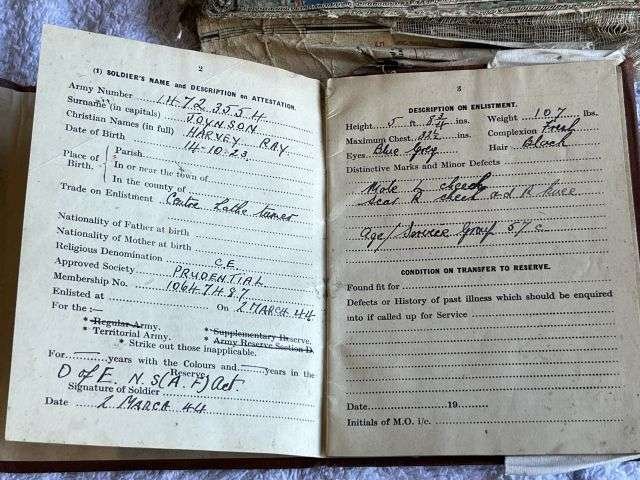 2
(1) SOLDIER'S NAME and DESCRIPTION on ATTESTATION.
Army Number 14723554
Surname (in capitals) JOYNSON
Christian Names (in full) HARVEY RAY
Date of Birth 14-10-23
Place of Birth. Parish
In or near the town of
In the county of
Trade on Enlistment Centre Lathe turner
Nationality of Father at birth
Nationality of Mother at birth
Religious Denomination C.E.
Approved Society PRUDENTIAL
Membership No. 10647487
Enlisted at On 2 MARCH 44
For the :—
* Regular Army. * Supplementary Reserve.
* Territorial Army. * Army Reserve Section D.
* Strike out those inapplicable.
For years with the Colours and years in the
Reserve
D of E N.S(A.F) Act
Signature of Soldier
Date 2 MARCH 44
3
DESCRIPTION ON ENLISTMENT.
Height 5 ft 8¾ ins. Weight 107 lbs.
Maximum Chest 33½ ins. Complexion Fresh
Eyes Blue Grey Hair Black
Distinctive Marks and Minor Defects
Mole L cheek
Scar R cheek and R knee
Age/Service Group 57 c
CONDITION ON TRANSFER TO RESERVE.
Found fit for
Defects or History of past illness which should be enquired
into if called up for Service
Date 19
Initials of M.O. i/c.